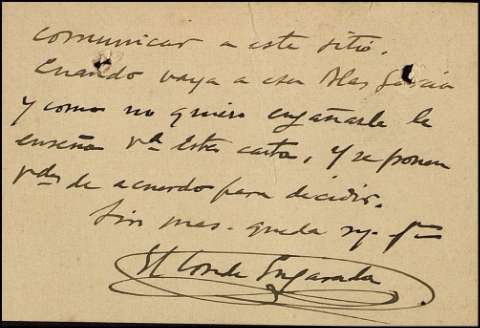 comunicar a este sitio.
Cuando vaya a esa Blas García
y como no quiero engañarle le
enseña Vd esta carta, y se ponen
Vdes de acuerdo para decidir.
Sin mas queda sy
El Conde